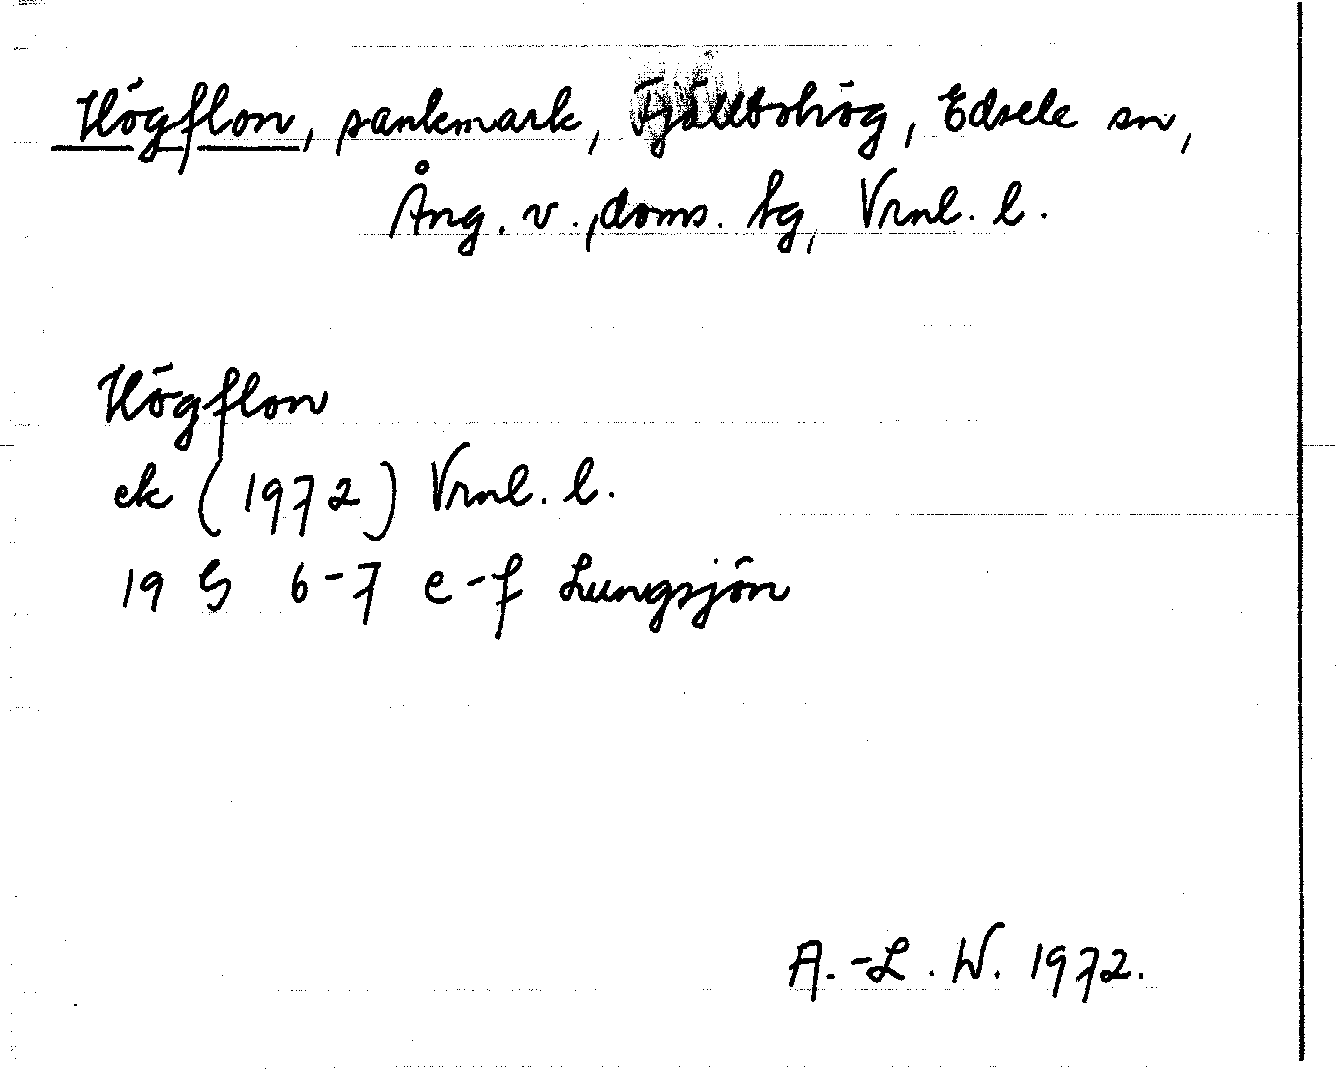 Högflon, sankmark, Fjällbohög, Edsele sn,
Ång. v., doms. tg, Vrnl. l.
Högflon
ek (1972) Vrnl. l.
19 G 6-7 e-f Lungsjön
A.-L. W. 1972.